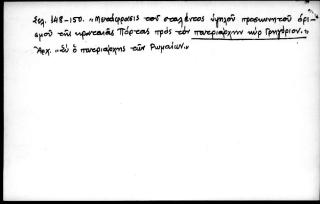 Σελ. 148-150. "Μετάφρασις τοῦ σταλέντος ὑψηλοῦ προσκυνητοῦ ὁρι-
σμοῦ τῆς κραταιᾶς Πόρτας πρὸς τὸν πατριάρχην κὺρ Γρηγόριον."
Ἀρχ. "Σὺ ὁ πατριάρχης τῶν Ρωμαίων."